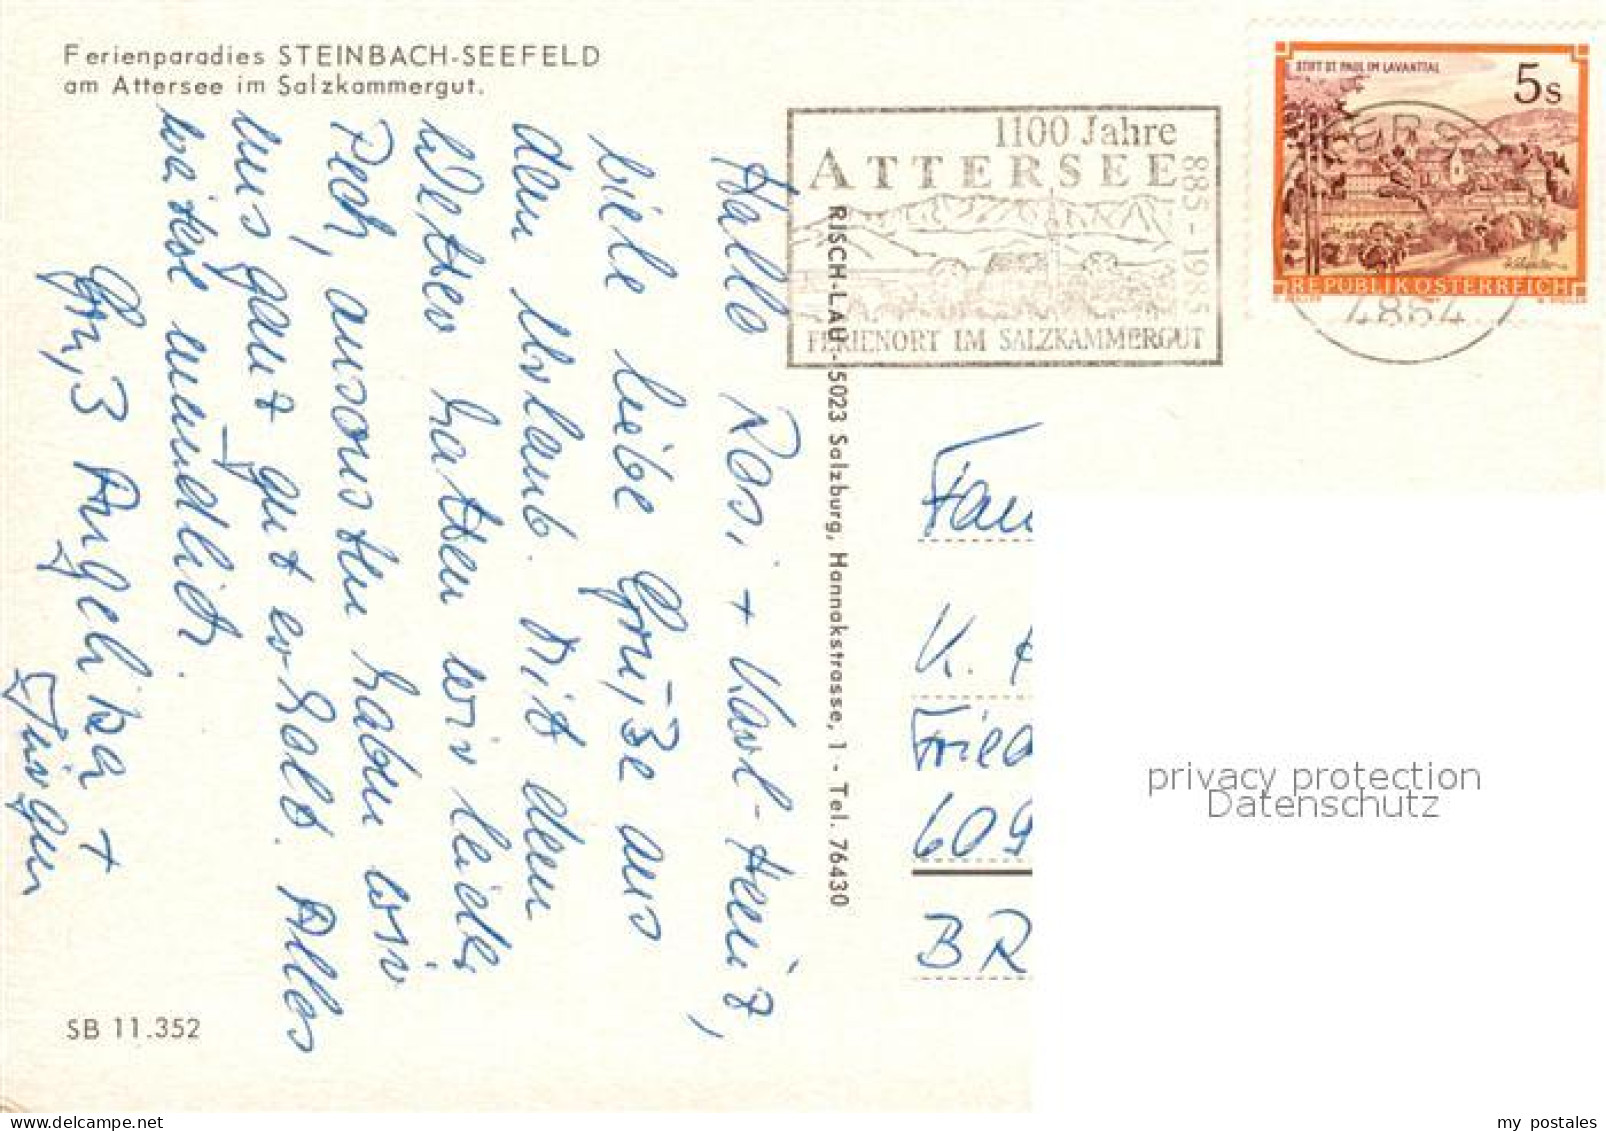 Ferienparadies STEINBACH-SEEFELD
am Attersee im Salzkammergut.
1100 Jahre
ATTERSEE
885-1985
FERIENORT IM SALZKAMMERGUT
STIFT ST. PAUL IM LAVANTTAL
5 S
REPUBLIK ÖSTERREICH
4864
Hallo Rosi + Karl-Heinz,
viele liebe Grüße aus
dem Urlaub. Mit dem
Wetter hatten wir leider
Pech, ansonsten haben wir
uns ganz gut erholt. Alles
weitere mündlich.
Gruß Angelika +
Jürgen
RISCH-LAU - 5023 Salzburg, Hannakstrasse, 1 - Tel. 76430
Fam
K. H
Fried
609
BR
SB 11.352
privacy protection
Datenschutz
delcampe.net
my_postales